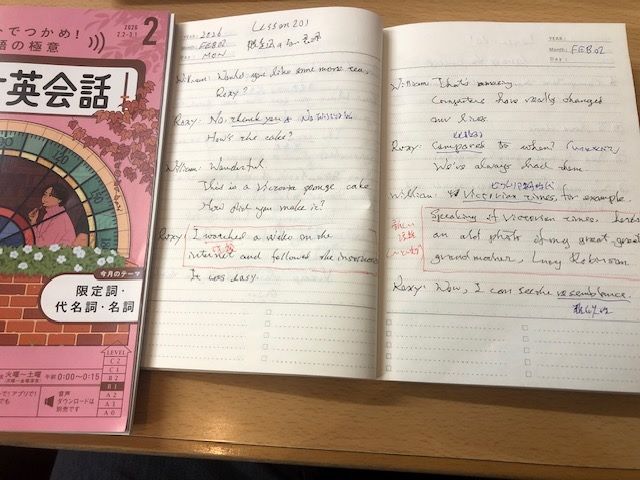 トでつかめ!
語の極意
2026
2.2–3.1
2
英会話
今月のテーマ
限定詞・
代名詞・名詞
火曜〜土曜
午前0:00〜0:15
音声
ダウンロードは
別売です
LEVEL
C 2
C 1
B 2
B 1
A 2
A 1
A 0
YEAR: 2026
Month: FEB 02
Day: MON
Lesson 201
William: Would you like some more tea,
Roxy?
Roxy: No, thank you
How's the cake?
William: Wonderful.
This is a Victoria sponge cake
How did you make it?
Roxy: I watched a video on the
internet and followed the instructions
It was easy.
YEAR:
Month: FEB 02
Day:
William: That's amazing.
Computers have really changed
our lives.
Roxy: Compared to when?
We've always had them.
William: Victorian times, for example.
Speaking of Victorian times, here's
an old photo of my great-great
grandmother, Lucy Robinson.
新しい
話題
Roxy: Wow, I can see the resemblance.